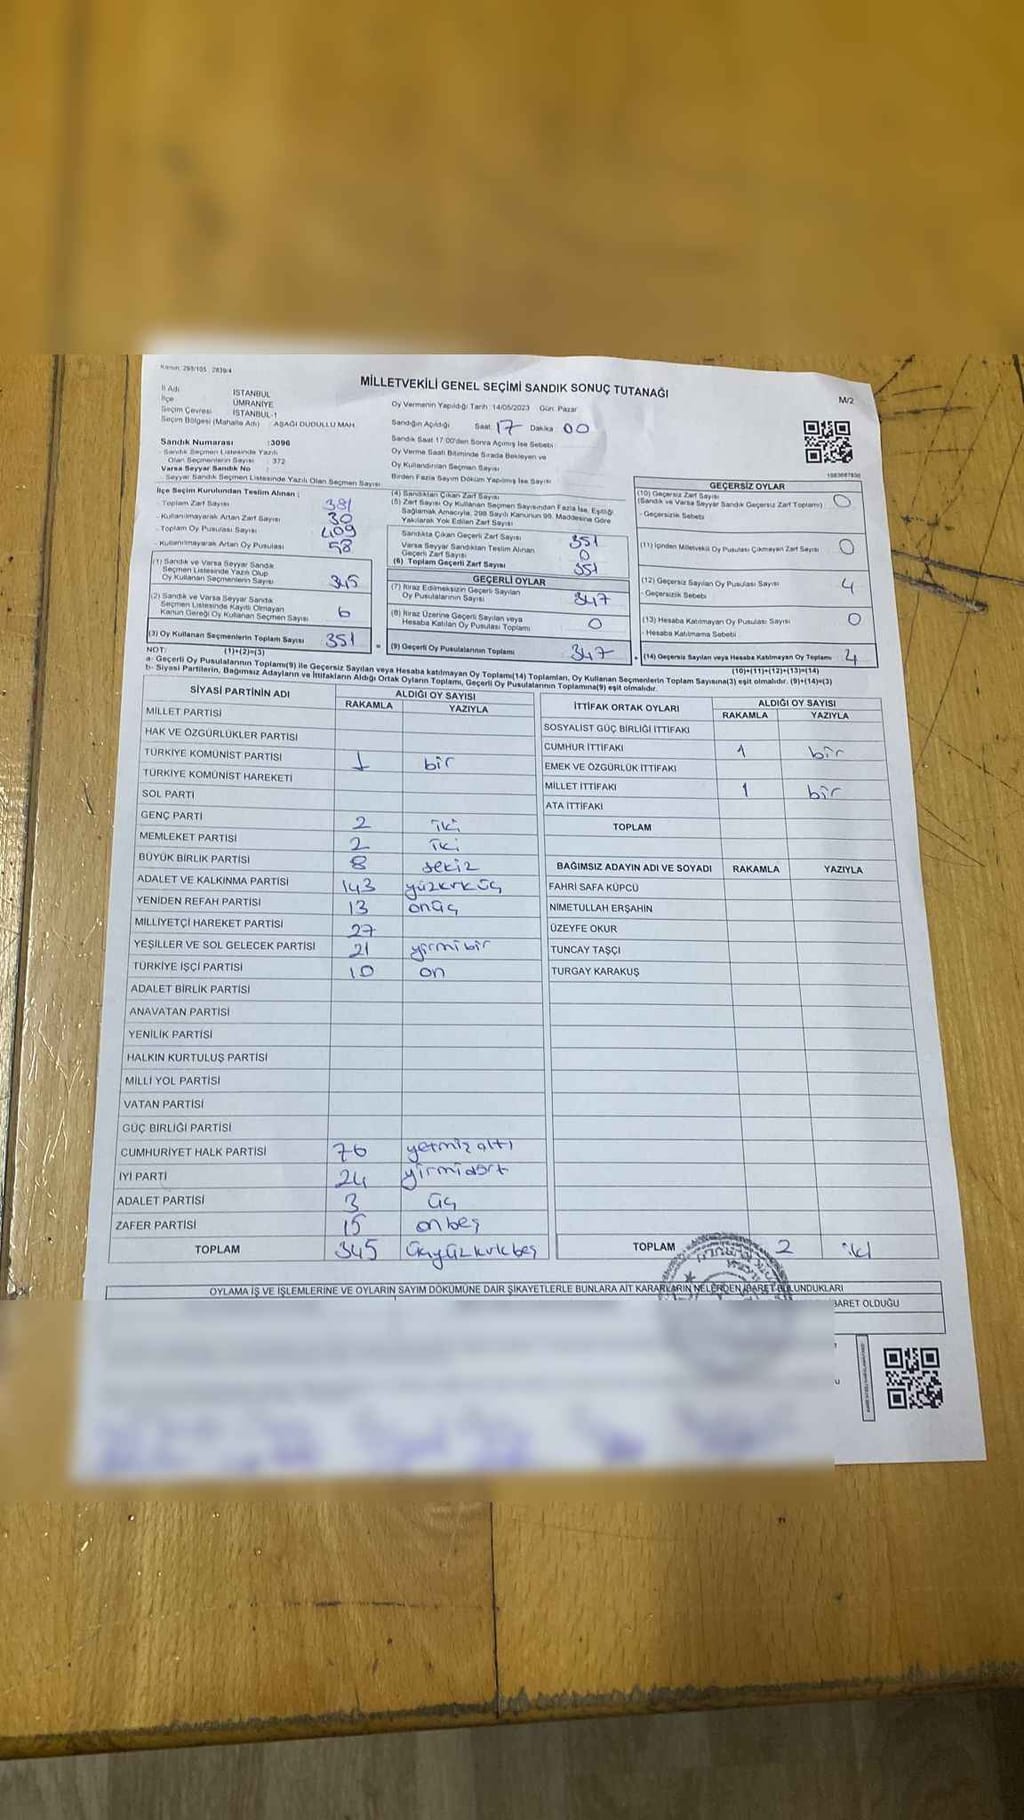 Kanun: 298/105 2839/4
MİLLETVEKİLİ GENEL SEÇİMİ SANDIK SONUÇ TUTANAĞI
M/2
İl Adı İSTANBUL
İlçe ÜMRANİYE
Seçim Çevresi İSTANBUL-1
Seçim Bölgesi (Mahalle Adı) : AŞAĞI DUDULLU MAH.
Sandık Numarası :3096
- Sandık Seçmen Listesinde Yazılı
Olan Seçmenlerin Sayısı : 372
Varsa Seyyar Sandık No :
- Seyyar Sandık Seçmen Listesinde Yazılı Olan Seçmen Sayısı :
Oy Vermenin Yapıldığı Tarih :14/05/2023 Gün: Pazar
Sandığın Açıldığı Saat: 17 Dakika 00
Sandık Saat 17:00'den Sonra Açılmış İse Sebebi:
Oy Verme Saati Bitiminde Sırada Bekleyen ve
Oy Kullandırılan Seçmen Sayısı
Birden Fazla Sayım Döküm Yapılmış İse Sayısı
İlçe Seçim Kurulundan Teslim Alınan :
- Toplam Zarf Sayısı 381
- Kullanılmayarak Artan Zarf Sayısı 30
- Toplam Oy Pusulası Sayısı 409
- Kullanılmayarak Artan Oy Pusulası 58
(1) Sandık ve Varsa Seyyar Sandık
Seçmen Listesinde Yazılı Olup
Oy Kullanan Seçmenlerin Sayısı 345
(2) Sandık ve Varsa Seyyar Sandık
Seçmen Listesinde Kayıtlı Olmayan
Kanun Gereği Oy Kullanan Seçmen Sayısı 6
(3) Oy Kullanan Seçmenlerin Toplam Sayısı 351
(4) Sandıktan Çıkan Zarf Sayısı
(5) Zarf Sayısı Oy Kullanan Seçmen Sayısından Fazla İse, Eşitliği
Sağlamak Amacıyla, 298 Sayılı Kanunun 98. Maddesine Göre
Yakılarak Yok Edilen Zarf Sayısı
Sandıkta Çıkan Geçerli Zarf Sayısı 351
Varsa Seyyar Sandıktan Teslim Alınan
Geçerli Zarf Sayısı 0
(6) Toplam Geçerli Zarf Sayısı 351
GEÇERLİ OYLAR
(7) İtiraz Edilmeksizin Geçerli Sayılan
Oy Pusulalarının Sayısı 347
(8) İtiraz Üzerine Geçerli Sayılan veya
Hesaba Katılan Oy Pusulası Toplamı 0
= (9) Geçerli Oy Pusulalarının Toplamı 347
GEÇERSİZ OYLAR
(10) Geçersiz Zarf Sayısı
(Sandık ve Varsa Seyyar Sandık Geçersiz Zarf Toplamı) 0
- Geçersizlik Sebebi
(11) İçinden Milletvekili Oy Pusulası Çıkmayan Zarf Sayısı 0
(12) Geçersiz Sayılan Oy Pusulası Sayısı 4
- Geçersizlik Sebebi
(13) Hesaba Katılmayan Oy Pusulası Sayısı 0
- Hesaba Katılmama Sebebi
+ (14) Geçersiz Sayılan veya Hesaba Katılmayan Oy Toplamı 4
NOT: (1)+(2)=(3) (10)+(11)+(12)+(13)=(14)
a- Geçerli Oy Pusulalarının Toplamı(9) ile Geçersiz Sayılan veya Hesaba katılmayan Oy Toplamı(14) Toplamları, Oy Kullanan Seçmenlerin Toplam Sayısına(3) eşit olmalıdır. (9)+(14)=(3)
b- Siyasi Partilerin, Bağımsız Adayların ve İttifakların Aldığı Ortak Oyların Toplamı, Geçerli Oy Pusulalarının Toplamına(9) eşit olmalıdır.
SİYASİ PARTİNİN ADI ALDIĞI OY SAYISI
RAKAMLA YAZIYLA
MİLLET PARTİSİ
HAK VE ÖZGÜRLÜKLER PARTİSİ
TÜRKİYE KOMÜNİST PARTİSİ 1 bir
TÜRKİYE KOMÜNİST HAREKETİ
SOL PARTİ
GENÇ PARTİ 2 iki
MEMLEKET PARTİSİ 2 iki
BÜYÜK BİRLİK PARTİSİ 8 sekiz
ADALET VE KALKINMA PARTİSİ 143 yüzkırküç
YENİDEN REFAH PARTİSİ 13 onüç
MİLLİYETÇİ HAREKET PARTİSİ 27
YEŞİLLER VE SOL GELECEK PARTİSİ 21 yirmibir
TÜRKİYE İŞÇİ PARTİSİ 10 on
ADALET BİRLİK PARTİSİ
ANAVATAN PARTİSİ
YENİLİK PARTİSİ
HALKIN KURTULUŞ PARTİSİ
MİLLİ YOL PARTİSİ
VATAN PARTİSİ
GÜÇ BİRLİĞİ PARTİSİ
CUMHURİYET HALK PARTİSİ 76 yetmiş altı
İYİ PARTİ 24 yirmidört
ADALET PARTİSİ 3 üç
ZAFER PARTİSİ 15 onbeş
TOPLAM 345 üçyüzkırkbeş
İTTİFAK ORTAK OYLARI ALDIĞI OY SAYISI
RAKAMLA YAZIYLA
SOSYALİST GÜÇ BİRLİĞİ İTTİFAKI
CUMHUR İTTİFAKI 1 bir
EMEK VE ÖZGÜRLÜK İTTİFAKI
MİLLET İTTİFAKI 1 bir
ATA İTTİFAKI
TOPLAM
BAĞIMSIZ ADAYIN ADI VE SOYADI RAKAMLA YAZIYLA
FAHRİ SAFA KÜPCÜ
NİMETULLAH ERŞAHİN
ÜZEYFE OKUR
TUNCAY TAŞÇI
TURGAY KARAKUŞ
TOPLAM 2 iki
OYLAMA İŞ VE İŞLEMLERİNE VE OYLARIN SAYIM DÖKÜMÜNE DAİR ŞİKAYETLERLE BUNLARA AİT KARARLARIN NELERDEN İBARET BULUNDUKLARI
BARET OLDUĞU